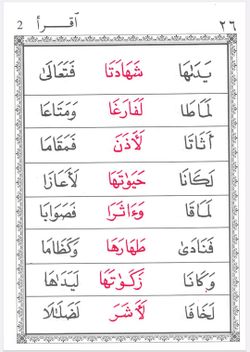 ٢٦ اقرأ 2
يَدَىٰهَا شَهَادَتَا فَتَعَالَىٰ
لَمَاطَا لَفَارِغَا وَمَتَاعَا
أَثَاثَا لَأَذَنَ فَمَقَامَا
لَكَانَا حَيَوٰتَهَا لَأَعَازَا
لَمَاقَا وَءَاثَرَا فَصَوَابَا
فَنَادَىٰ طَهَارَهَا وَكَظَامَا
وَكَانَا زَكَوٰتَهَا لَيَدَىٰهَا
لَخَافَا لَأَشَرَ لَضَلَٰلَا